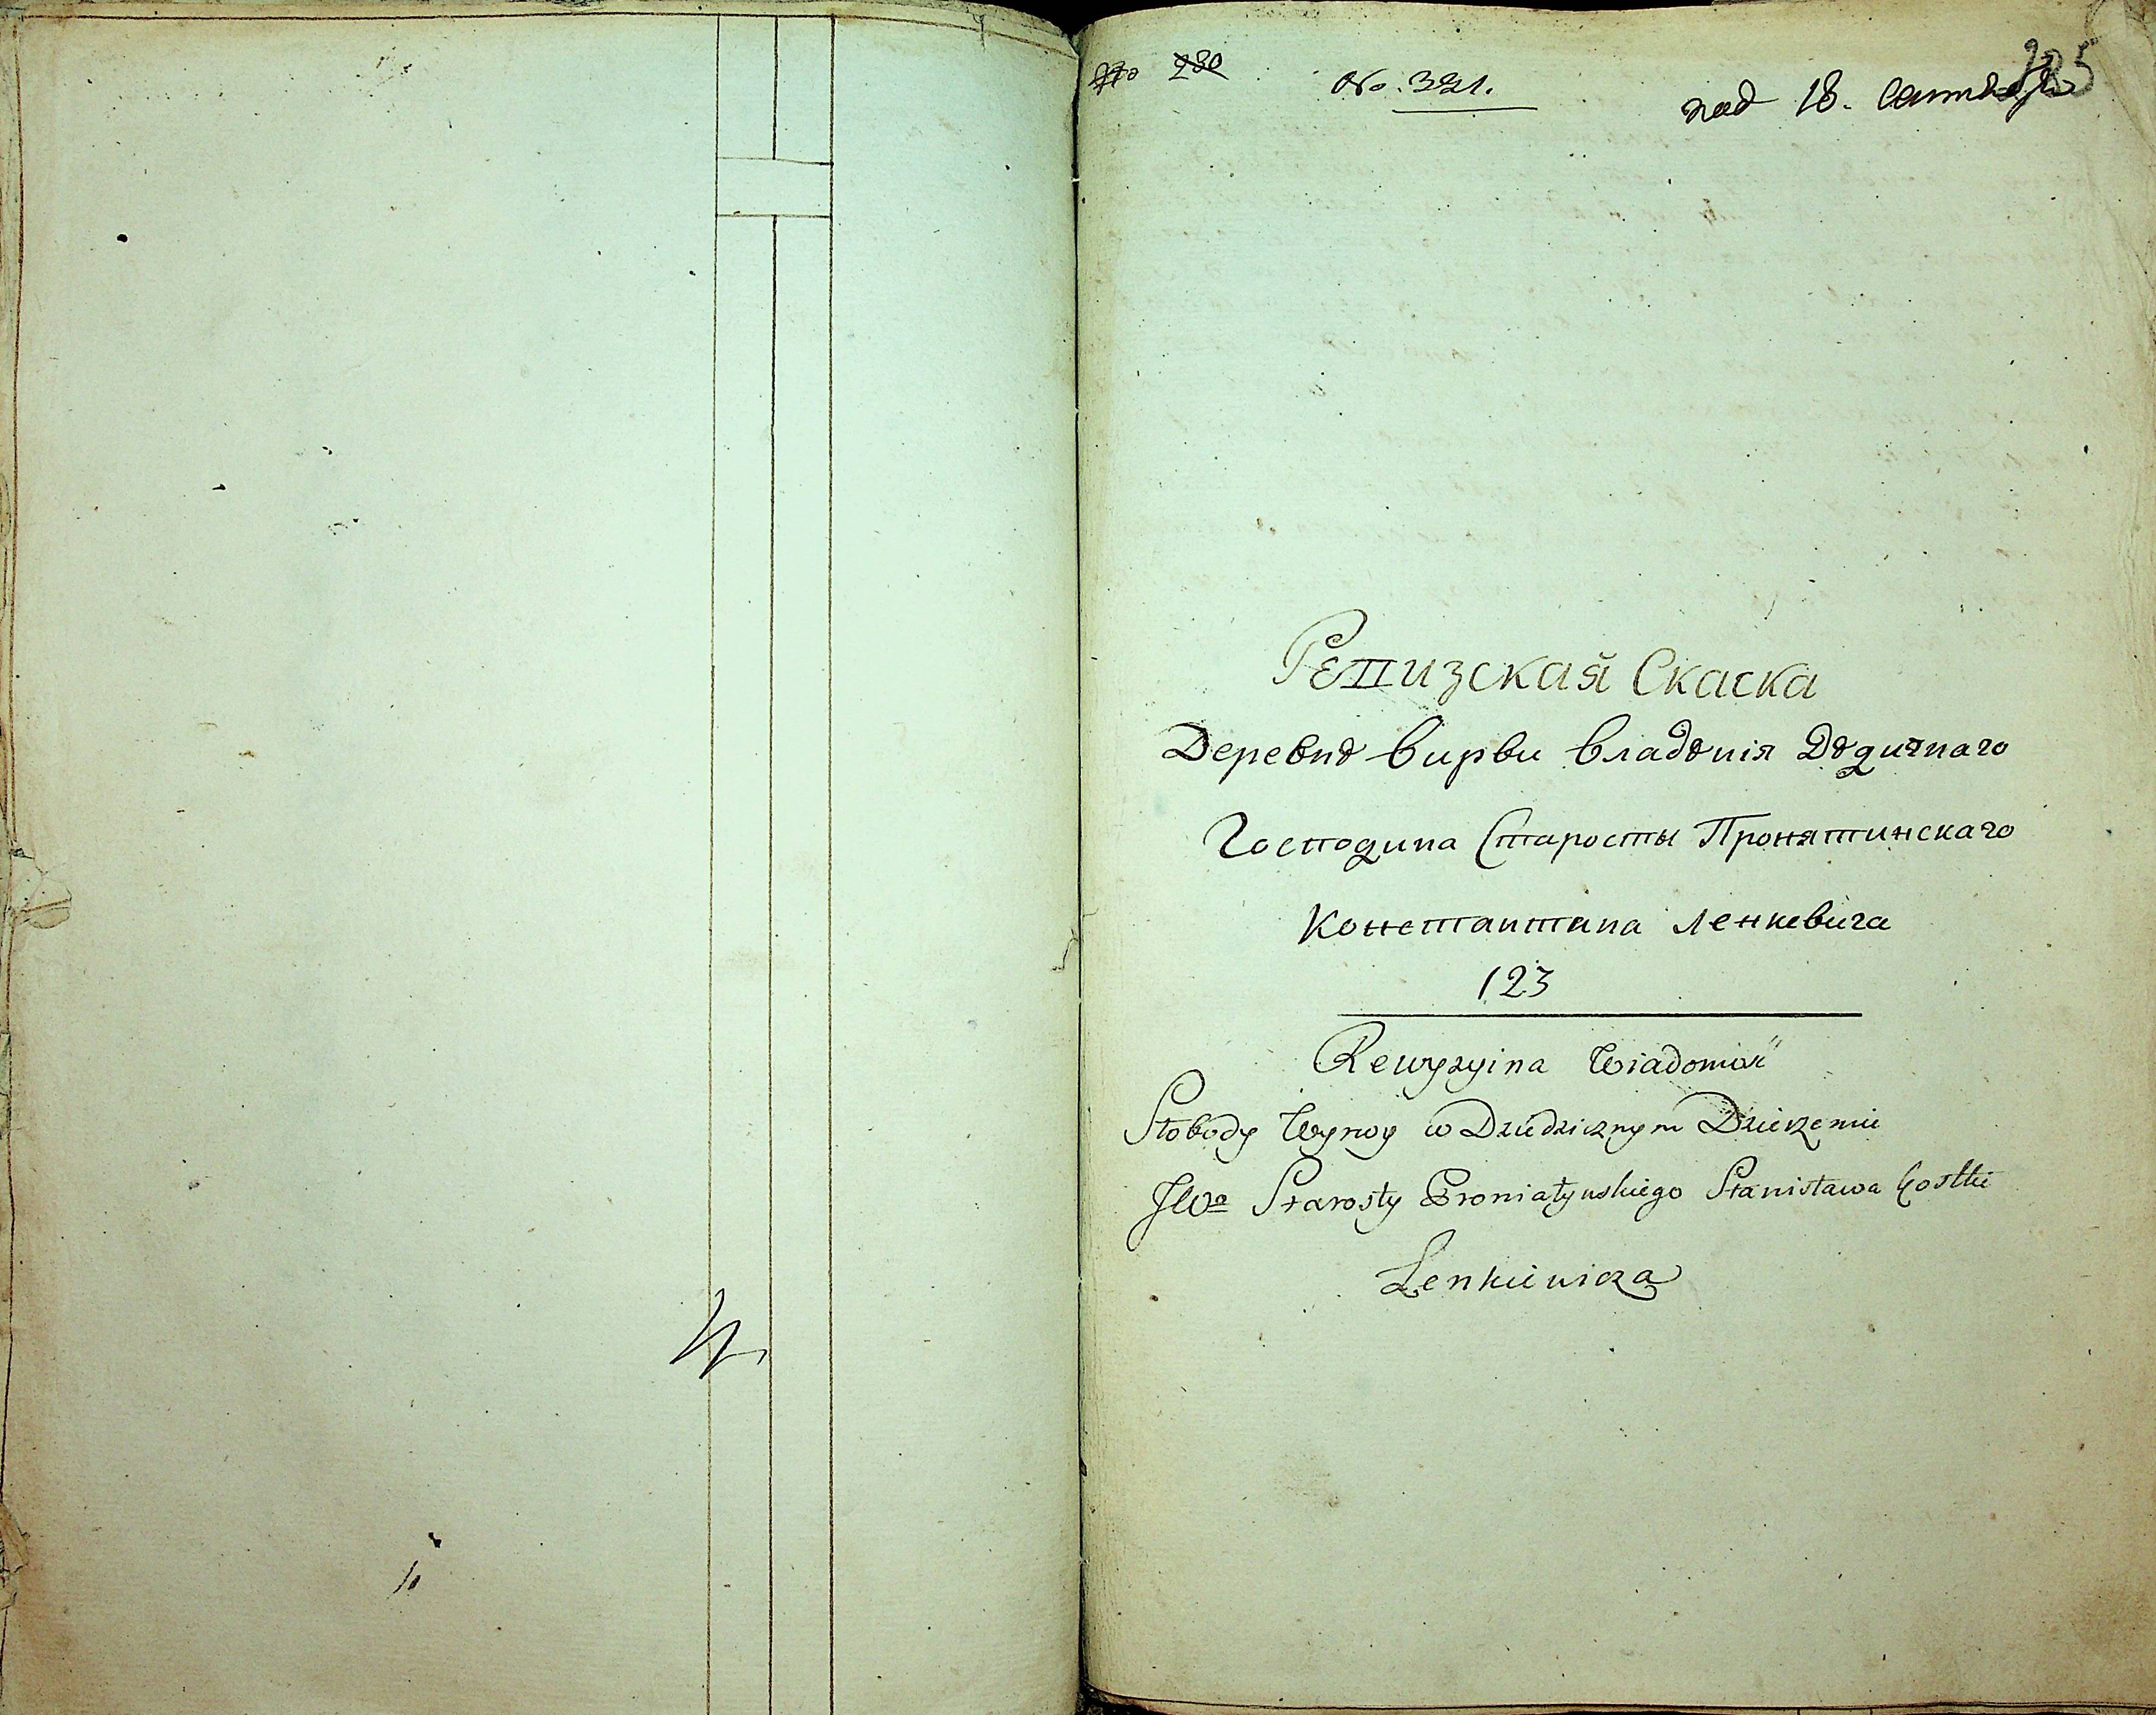 280
No. 321.
под 18. сентября
185
Репизская Скаска
Деревнѣ Вирви Владѣнія Дѣдичнаго
Господина Старосты Пронятинскаго
Констаптина Ленкевича
123
Rewyzyina Wiadomość
Słobody Wyrwy w Dziedzicznym Dzierzeniu
JWo Starosty Proniatyńskiego Stanisława Kostki
Lenkiewicza